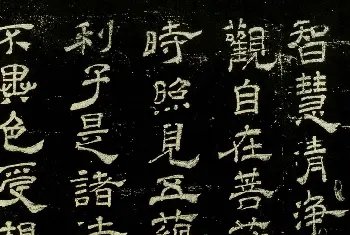 智慧清淨
觀自在菩
時照見五蘊
利子是諸法
不異色受想